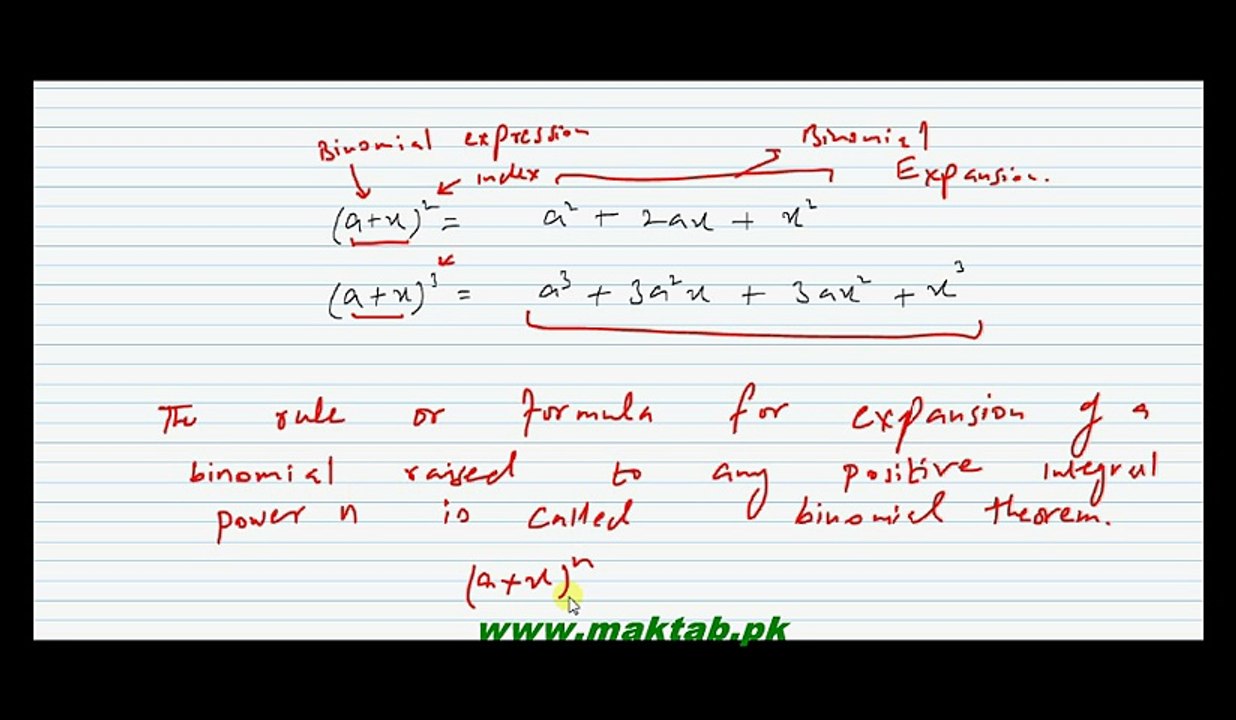 Binomial expression
Binomial
index
Expansion.
(a+x)² = a² + 2ax + x²
(a+x)³ = a³ + 3a²x + 3ax² + x³
The rule or formula for expansion of a
binomial raised to any positive integral
power n is called binomial theorem.
(a+x)ⁿ
www.maktab.pk